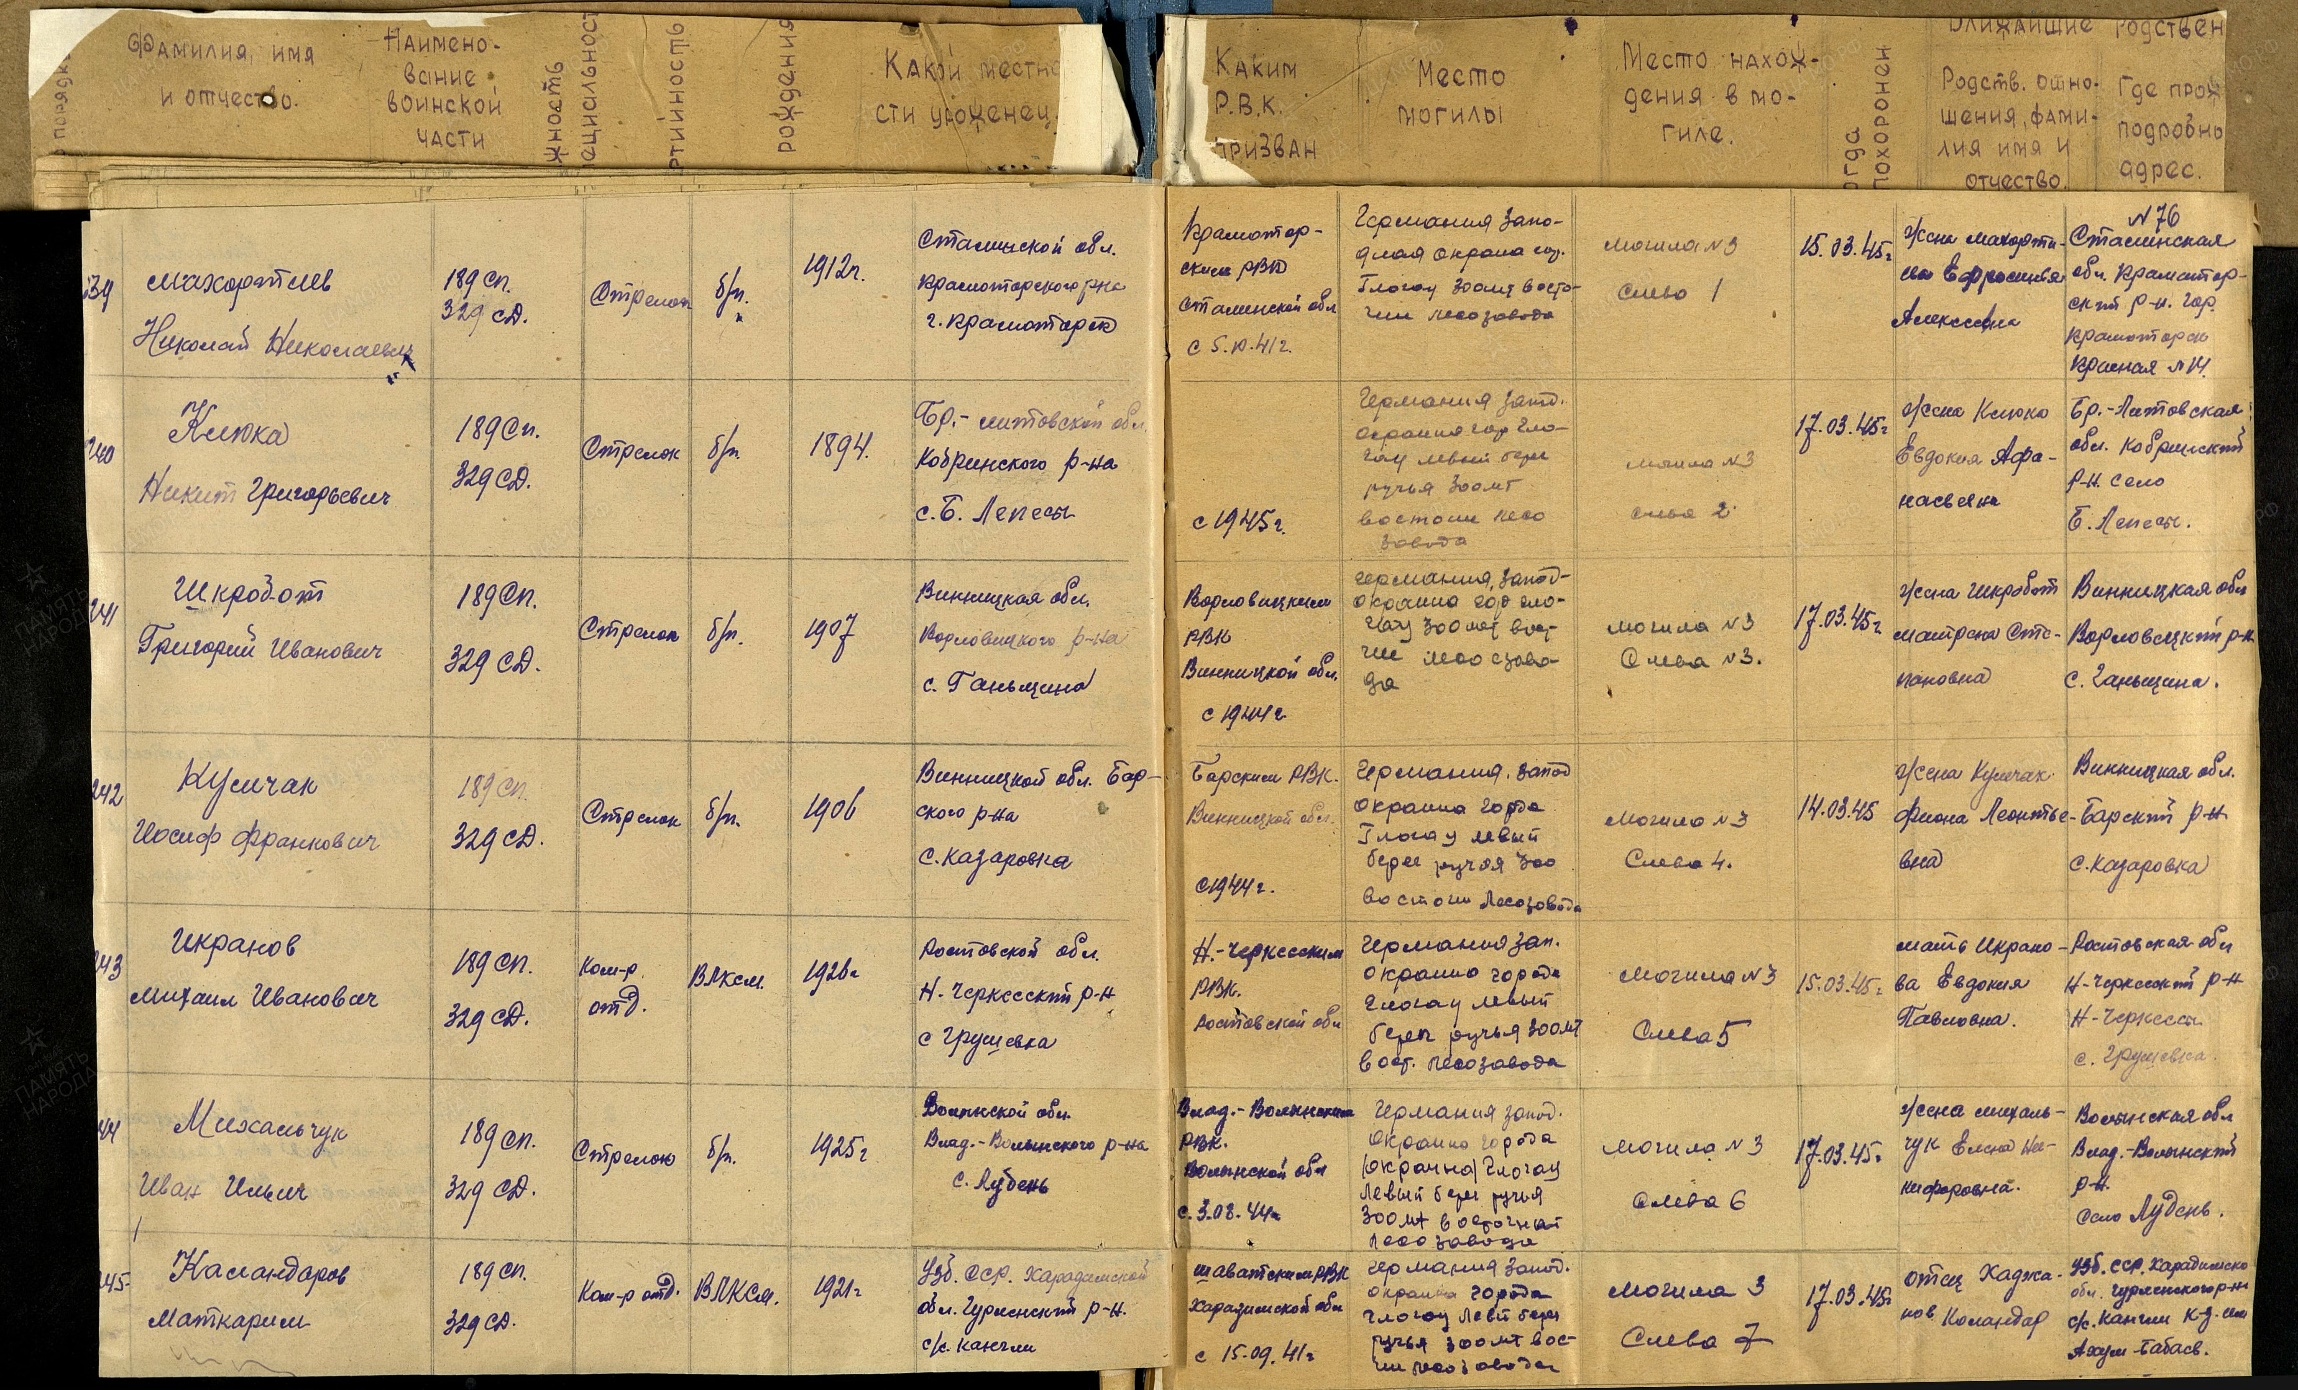 Фамилия, имя
и отчество.
Наимено-
вание
воинской
части
рождения
Какой местно
сти уроженец
Каким
Р.В.К.
призван
Место
могилы
Место нахож-
дения в мо-
гиле.
похоронен
Ближайшие родствен
Родств. отно-
шения, фами-
лия имя и
отчество.
Где прож
подробны
адрес.
N 76
Махортов
Николай Николаевич
189 сп.
329 сд.
Стрелок
б/п.
1912г.
Сталинской обл.
Краматорского р-на
г. Краматорск
Краматор-
ским РВК
Сталинской обл
Германия запа-
дная окраина гор.
Глогау 300мт восто-
чнее лесозавода
Могила N3
Слева 1
15.03.45г
Жена Махорто-
ва Ефросинья
Алексеевна
Сталинская
обл. Краматор-
ский р-н. гор.
Краматорск
Красная
240
Клюка
Никит Григорьевич
189 сп.
329 сд.
Стрелок
б/п.
1894.
Бр.-Литовской обл.
Кобринского р-на
с. Б. Лепесы
с 1945г.
Германия запад.
окраина гор Гло-
гау левый берег
ручья 300мт
восточн лесо
завода
могила N3
слева 2
17.03.45г
Жена Клюка
Евдокия Афа-
насьевна
Бр.-Литовская
обл. Кобринский
р-н. село
Б. Лепесы.
241
Шкробот
Григорий Иванович
189 сп.
329 сд.
Стрелок
б/п.
1907
Винницкая обл.
Ворловицкого р-на
с. Ганьщина
Ворловицким
РВК
Винницкой обл.
с 1944г
Германия, запад-
окраина гор Гло-
гау 300мт вост-
чне лесозаво-
да
могила N3
Слева N3.
17.03.45г.
Жена Шкробот
Матрена Сте-
пановна
Винницкая обл
Ворловецкий р-н
с. Ганьщина.
242
Кулчак
Иосиф Франкович
189 сп.
329 сд.
Стрелок
б/п.
1906
Винницкой обл. Бар-
ского р-на
с. Казаровка
Барским РВК.
Винницкой обл.
с 1944г.
Германия, запад
окраина города
Глогау левый
берег ручья 300
восточн Лесозавода
Могила N3
Слева 4.
14.03.45
Жена Кулчак
Фиона Леонтье-
вна
Винницкая обл.
Барский р-н
с. Казаровка
243
Икранов
Михаил Иванович
189 сп.
329 сд.
Ком-р
отд.
ВЛКСМ.
1926г
Ростовской обл.
Н.-Черкесский р-н
с Грушевка
Н.-Черкесским
РВК.
Ростовской обл
Германия зап.
окраина города
Глогау левый
берег ручья 300мт
вост. лесозавода
Могила N3
Слева 5
15.03.45г.
мать Икрано-
ва Евдокия
Павловна.
Ростовская обл
Н-Черкесский р-н
Н-Черкесск
с. Грушевка.
Михальчук
Иван Ильич
189 сп.
329 сд.
Стрелок
б/п.
1925г
Волынской обл.
Влад.-Волынского р-на
с. Лудень
Влад.-Волынским
РВК.
Волынской обл
с. 3.08.44г
Германия запад.
окраина города
(окраина) Глогау
Левый берег ручья
300мт восточней
лесозавода
Могила N3
Слева 6
17.03.45г
Жена Михаль-
чук Елена Ни-
кифоровна.
Волынская обл
Влад.-Волынский
р-н.
село Лудень.
Каландаров
Маткарим
189 сп.
329 сд.
Ком-р отд.
ВЛКСМ.
1921г
Узб. ССР. Харазимской
обл. Гурленский р-н.
с/с. Канчли
Шаватским РВК
Харазимской обл
с 15.09.41г
Германия запад.
окраина города
Глогау Левый берег
ручья 300мт вос-
чн лесозавода
Могила 3
Слева 7
17.03.45г
отец Хаджа-
нов Коландар
Узб. ССР. Харазимско
обл. Гурленского р-н
с/с. Канчли К-з. им
Ахун-Бабаев.